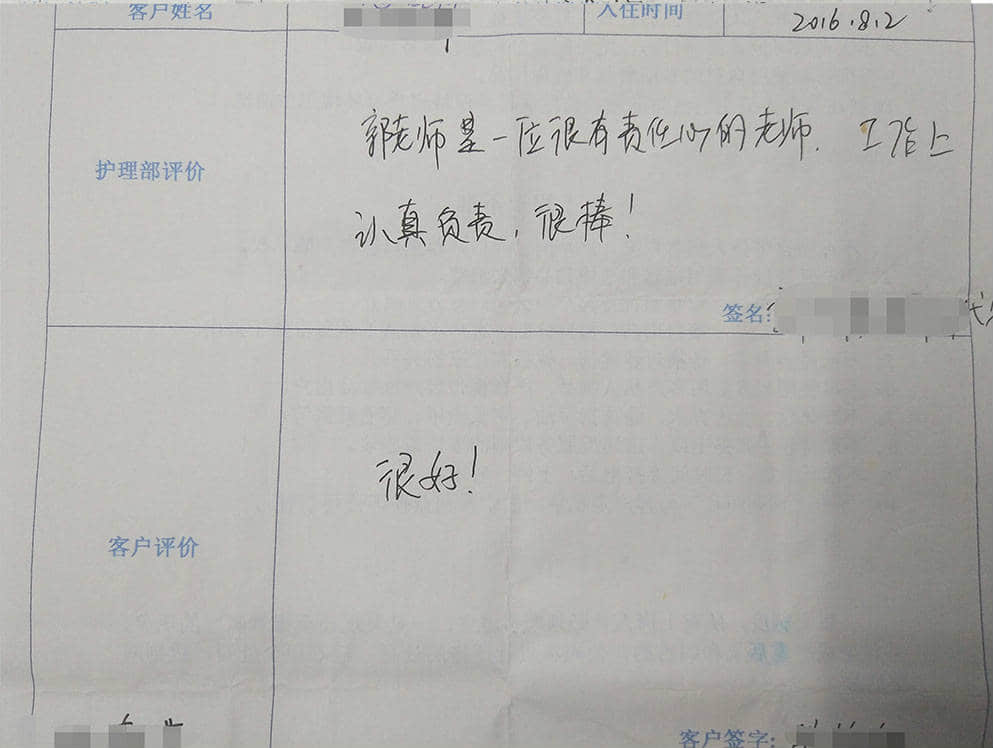 客户姓名 入住时间 2016.8.2
郭老师是一位很有责任心的老师. 工作上
护理部评价
认真负责，很棒！
签名:
很好！
客户评价
客户签字: